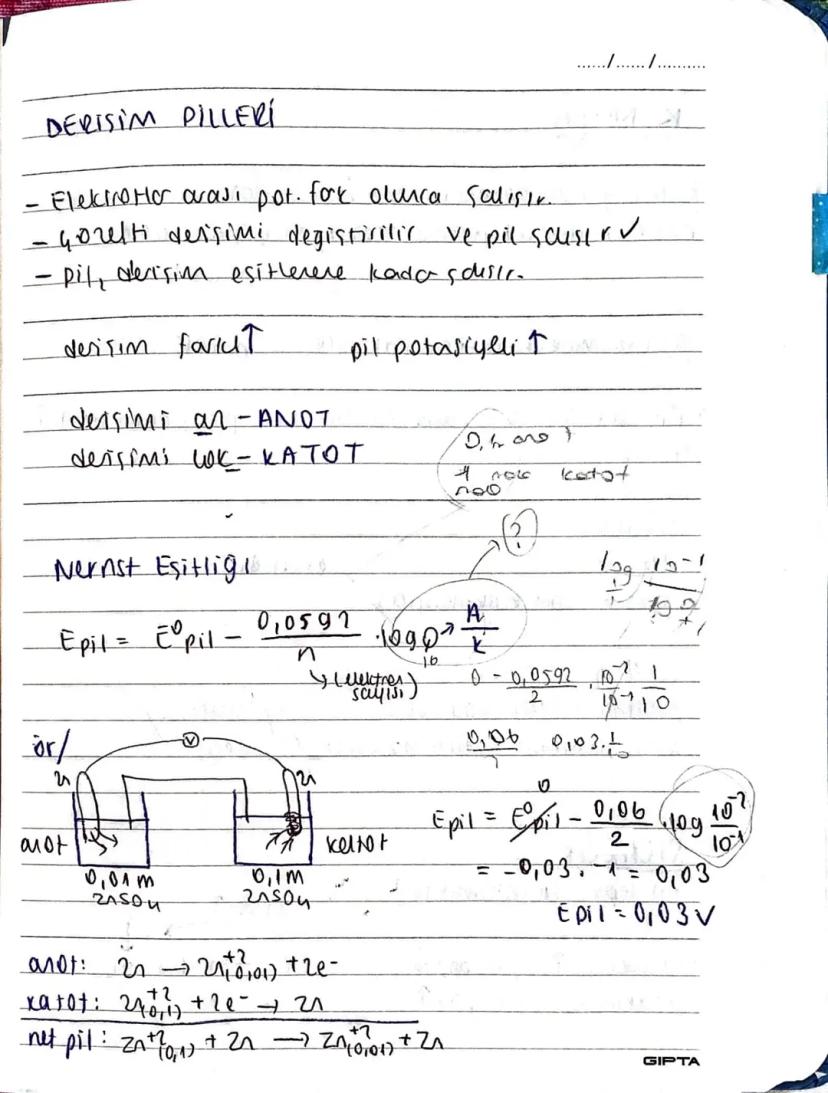 ....../....../..........
DERİŞİM PİLLERİ
- Elektrotlar arası pot. fark olunca çalışır.
- Çözelti derişimi değiştirilir ve pil çalışır ✓
- Pil, derişim eşitlenene kadar çalışır.
derişim farkı↑ pil potasiyeli ↑
derişimi az - ANOT
derişimi çok - KATOT
katot
?
Nernst Eşitliği
log 10-1
Epil = E⁰pil - 0,0592/n · log₁₀Q → A/K
(elektron sayısı)
0 - 0,0592/2 · 10⁻²/10⁻¹ 1/10
ör/
0,06 0,03·1/10
V
Zn Zn
anot katot
0,01 M 0,1 M
ZnSO₄ ZnSO₄
Epil = E⁰pil 0 - 0,06/2 · log 10⁻²/10⁻¹
= -0,03 · -1 = 0,03
Epil = 0,03 V
anot: Zn → Zn⁺²(0,01) + 2e⁻
katot: Zn⁺²(0,1) + 2e⁻ → Zn
net pil: Zn⁺²(0,1) + Zn → Zn⁺²(0,01) + Zn
GIPTA